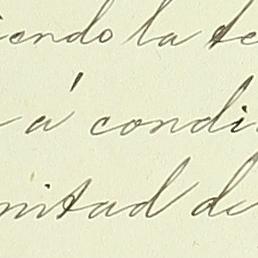 iendo la de
á condi
mitad de